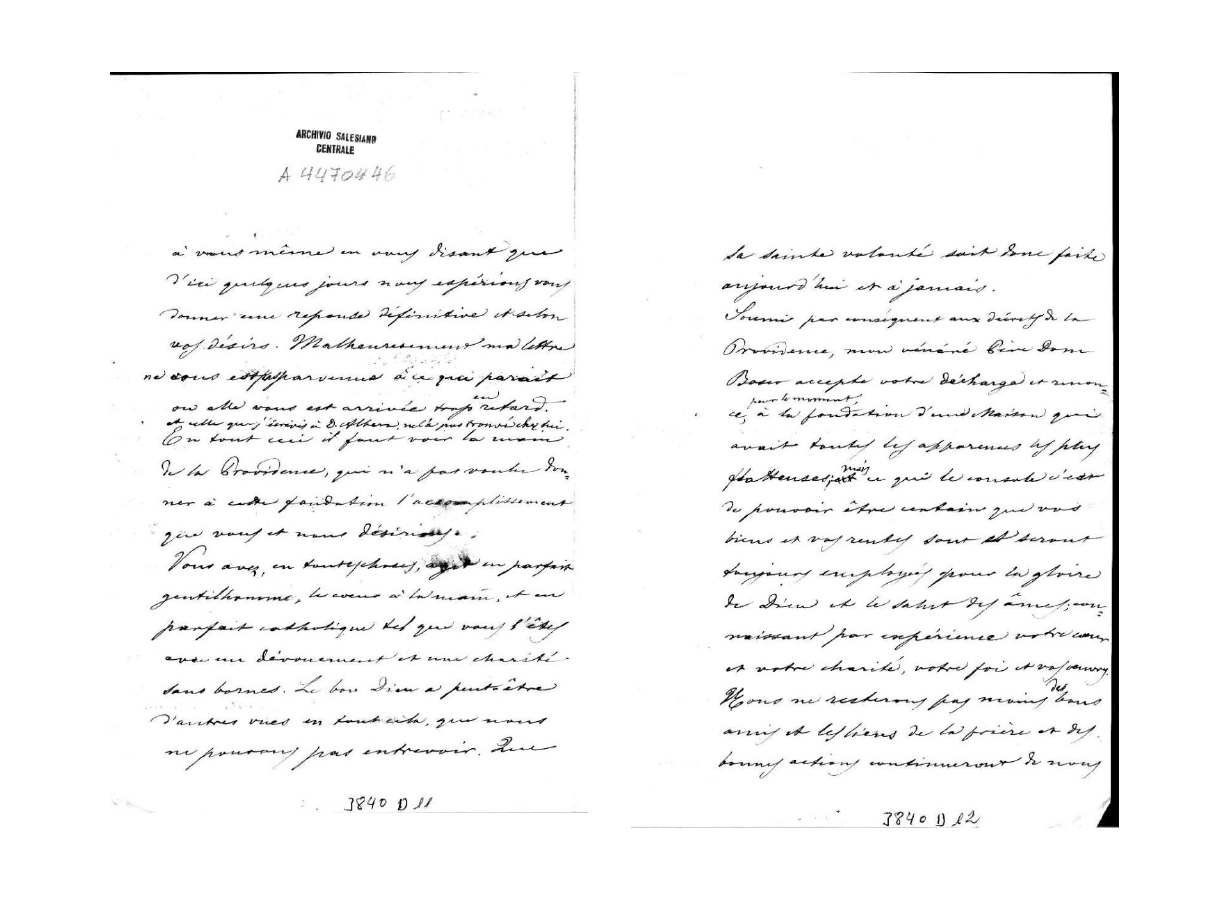 ARCHIVIO SALESIANO
CENTRALE
A 4470446
à vous même en vous disant que
d'ici quelques jours nous espérions vous
donner une reponse définitive et selon
vos désirs. Malheureusement ma lettre
ne vous est pas parvenue à ce qui parait
ou elle vous est arrivée trop en retard.
et celle que j'écrivis à D. Albera ne l'a pas trouvé chez lui.
En tout ceci il faut voir la main
de la Providence, qui n'a pas voulu don=
ner à cette fondation l'accomplissement
que vous et nous désirions.
Vous avez, en toutes choses, agit en parfait
gentilhomme, le coeur à la main, et en
parfait catholique tel que vous l'êtes
avec un dévouement et une charité
sans bornes. Le bon Dieu a peut-être
d'autres vues en tout cela, que nous
ne pouvons pas entrevoir. Que
3840 D 11
sa sainte volonté soit donc faite
aujourd'hui et à jamais.
Soumi par conséquent aux décrets de la
Providence, mon vénéré Père Dom
Bosco accepte votre décharge et renon=
ce, pour le moment, à la fondation d'une Maison qui
avait toutes les apparences les plus
flatteuses; mais ce qui le console c'est
de pouvoir être certain que vos
biens et vos rentes sont et seront
toujours employés pour la gloire
de Dieu et le salut des âmes; con=
naissant par expérience votre coeur
et votre charité, votre foi et vos oeuvres.
Nous ne resterons pas moins des bons
amis et les liens de la prière et des
bonnes actions continueront de nous
3840 D 12